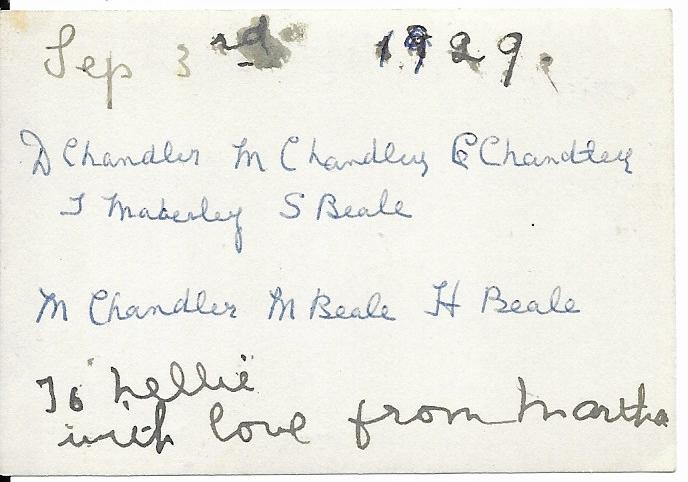 Sep 3rd 1929.
D Chandler M Chandler E Chandler
T Maberley S Beale
M Chandler M Beale H Beale
To Nellie
with love from Martha